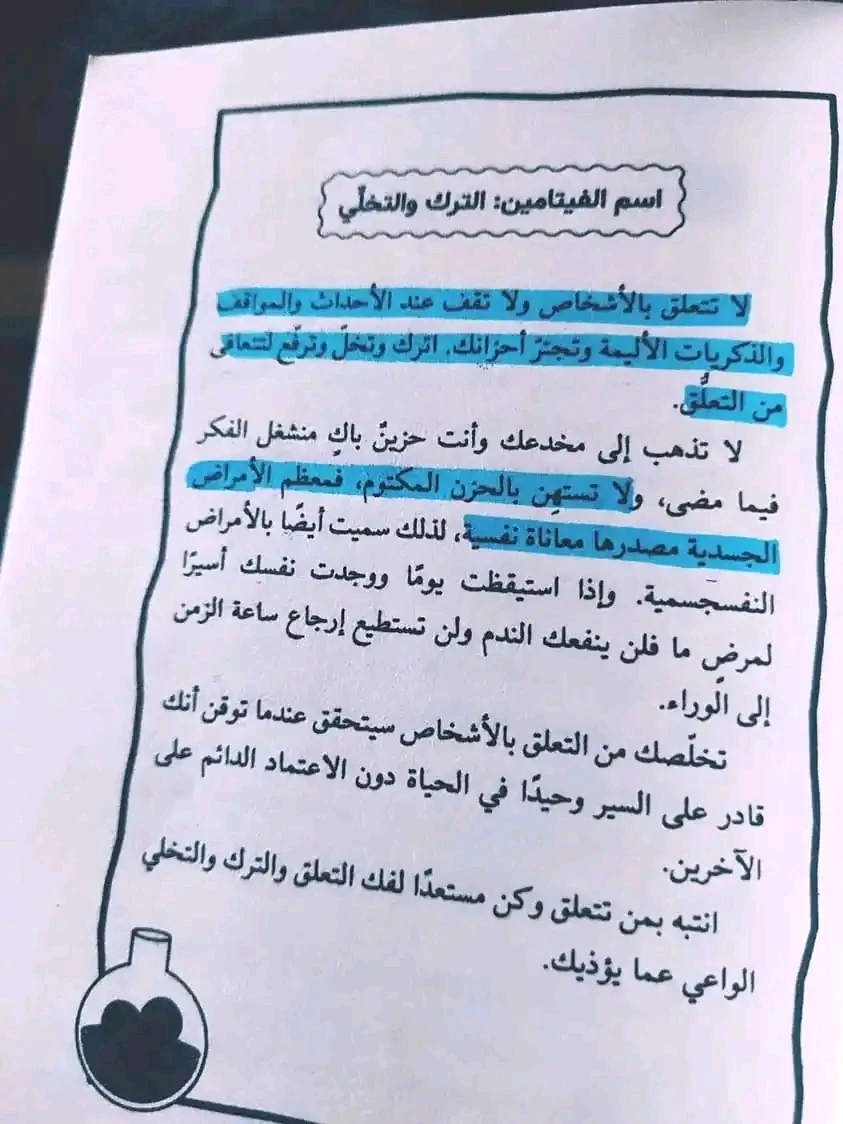 اسم الفيتامين: الترك والتخلّي
لا تتعلق بالأشخاص ولا تقف عند الأحداث والمواقف
والذكريات الأليمة وتجترّ أحزانك. اترك وتخلّ وترفّع لتتعافى
من التعلُّق.
لا تذهب إلى مخدعك وأنت حزينٌ باكٍ منشغل الفكر
فيما مضى، ولا تستهِن بالحزن المكتوم، فمعظم الأمراض
الجسدية مصدرها معاناة نفسية، لذلك سميت أيضًا بالأمراض
النفسجسمية. وإذا استيقظت يومًا ووجدت نفسك أسيرًا
لمرضٍ ما فلن ينفعك الندم ولن تستطيع إرجاع ساعة الزمن
إلى الوراء.
تخلّصك من التعلق بالأشخاص سيتحقق عندما توقن أنك
قادر على السير وحيدًا في الحياة دون الاعتماد الدائم على
الآخرين.
انتبه بمن تتعلق وكن مستعدًا لفك التعلق والترك والتخلي
الواعي عما يؤذيك.